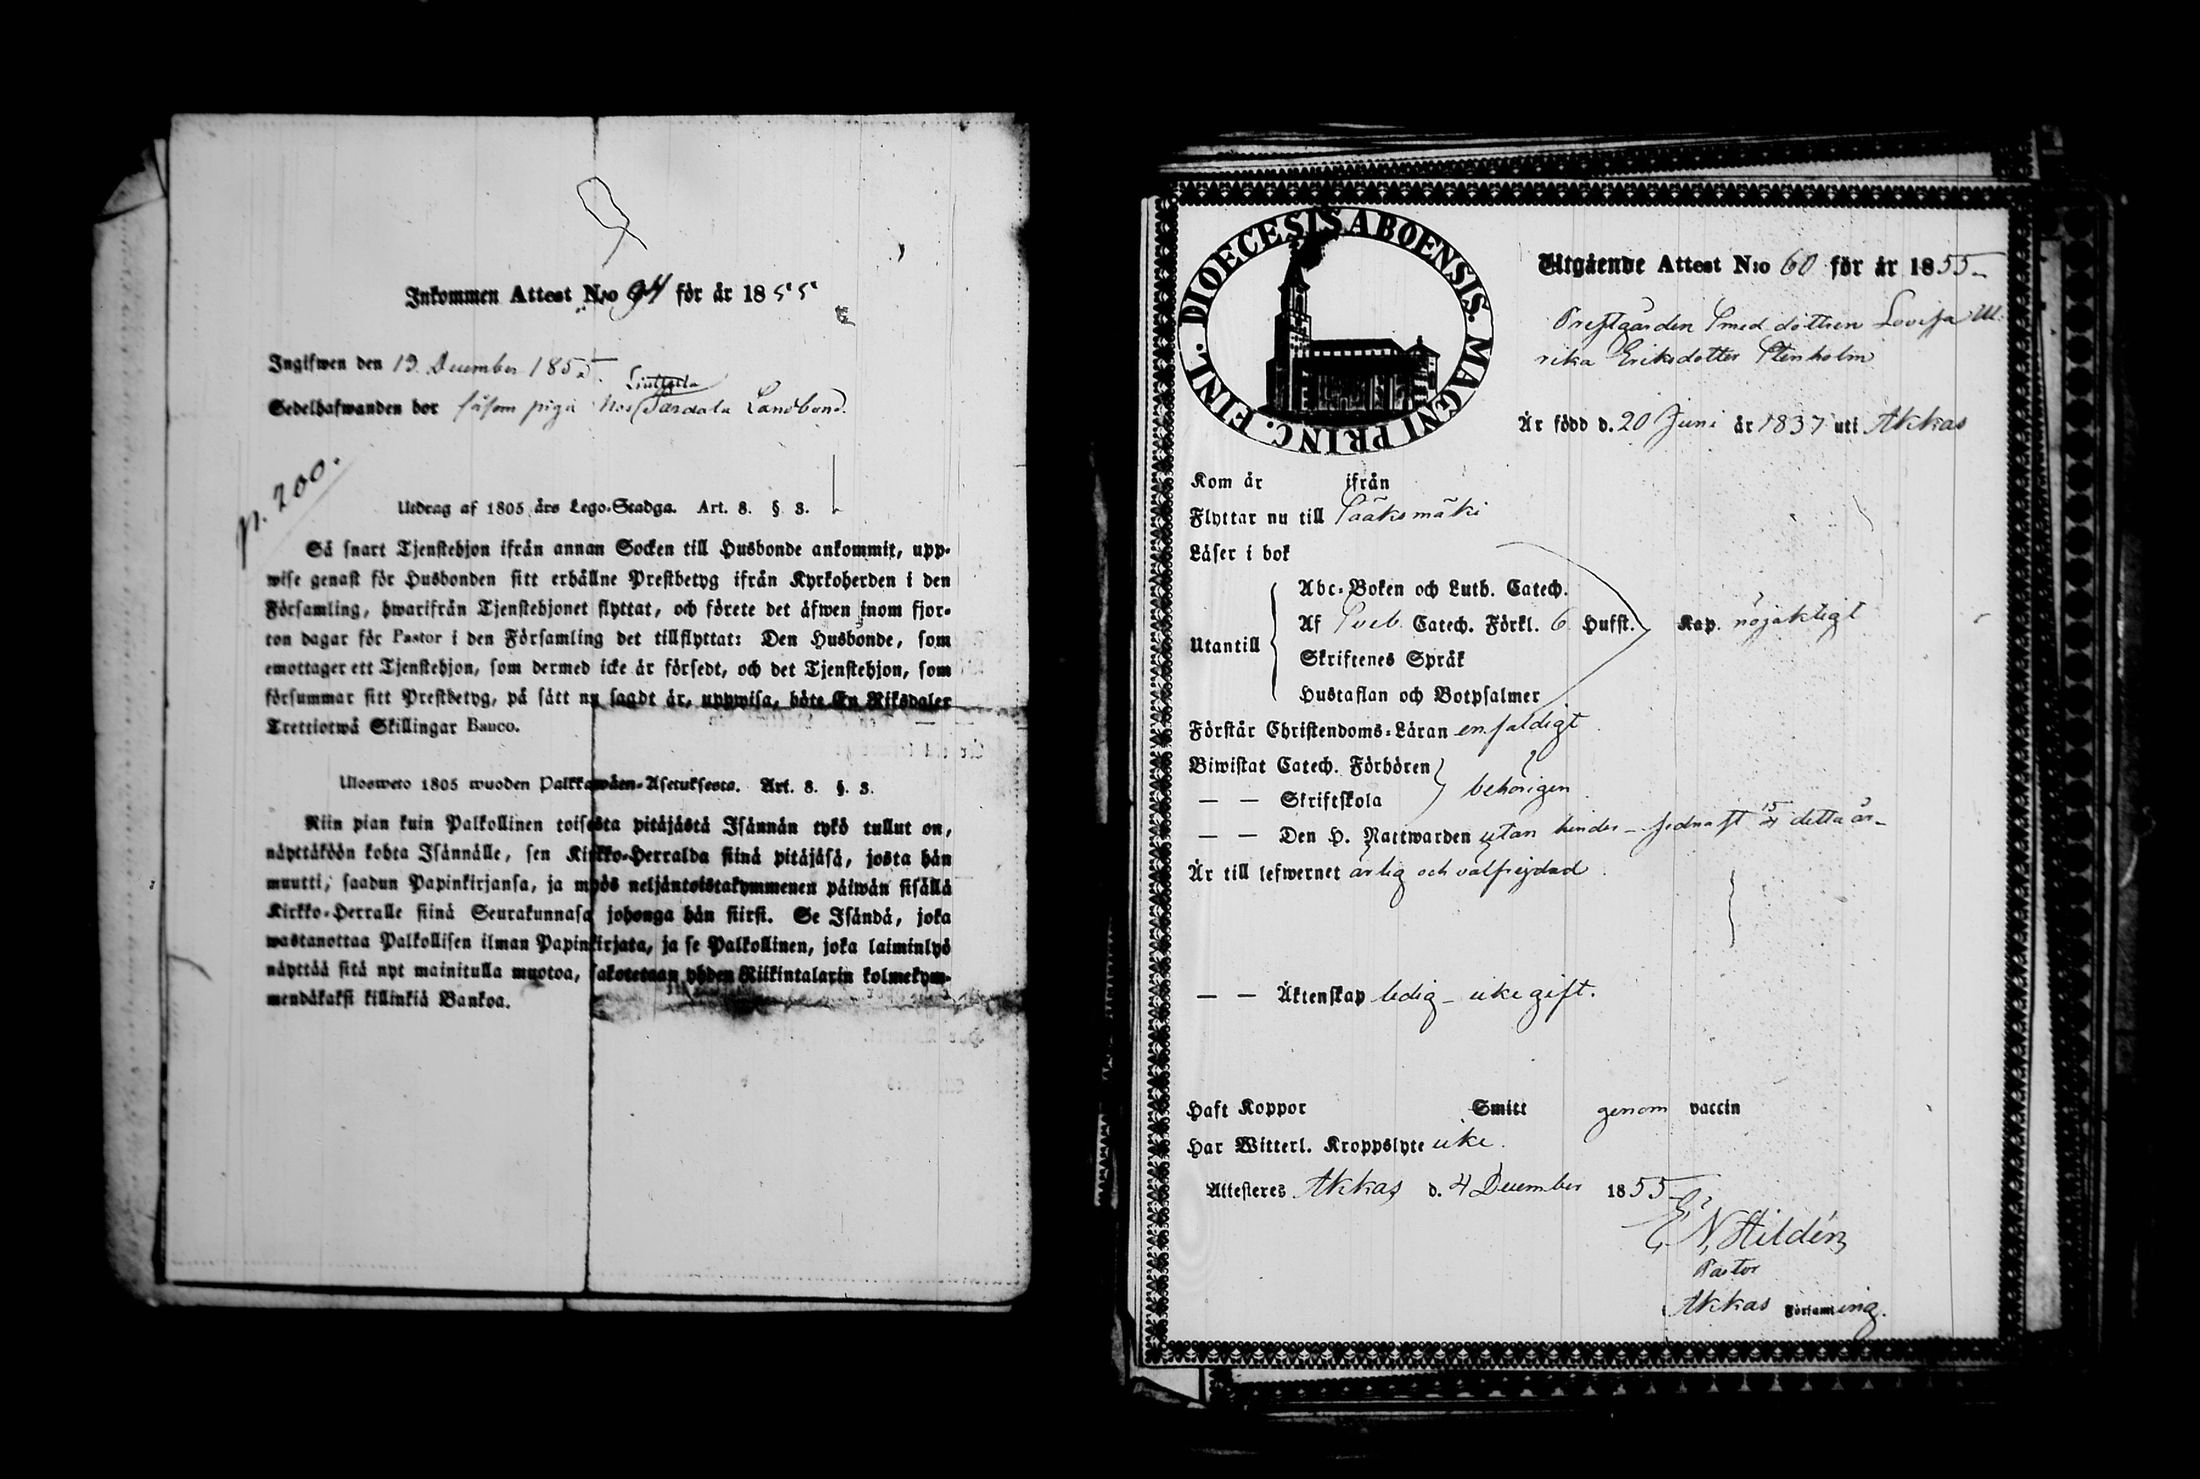 Inkommen Attest N:o 94 för år 1855
Ingifwen den 19 December 1855.
Liuttula
Sedelhafwanden bor såsom piga hos Tardala Landbond.
p. 200.
Utdrag af 1805 års Lego-Stadga. Art. 8. § 3.
Så snart Tjenstehjon ifrån annan Socken till Husbonde ankommit, upp-
wise genast för Husbonden sitt erhållne Prestbetyg ifrån Kyrkoherden i den
Församling, hwarifrån Tjenstehjonet flyttat, och förete det äfwen inom fjor-
ton dagar för Pastor i den Församling det tillflyttat: Den Husbonde, som
emottager ett Tjenstehjon, som dermed icke är försedt, och det Tjenstehjon, som
försummar sitt Prestbetyg, på sätt nu sagdt är, uppwisa, böte En Riksdaler
Trettiotwå Skillingar Banco.
Ulosweto 1805 wuoden Palkkawäen-Asetuksesta. Art. 8. §. 3.
Niin pian kuin Palkollinen toisesta pitäjästä Isännän tykö tullut on,
näyttäköön kohta Isännälle, sen Kirkko-Herralda siinä pitäjäsä, josta hän
muutti, saadun Papinkirjansa, ja myös neljäntoistakymmenen päiwän sisällä
Kirkko-Herralle siinä Seurakunnasa johonga hän siirsi. Se Isändä, joka
wastanottaa Palkollisen ilman Papinkirjata, ja se Palkollinen, joka laiminlyö
näyttää sitä nyt mainitulla muotoa, sakotetaan yhden Riikintalarin kolmekym-
mendäkaksi killinkiä Bankoa.
DIOECESIS ABOENSIS. MAGNI PRINC. FINL.
Utgående Attest N:o 60 för år 1855
Prestgården Smed dottren Lovisa Ul-
rika Eriksdotter Stenholm
Är född d. 20 Juni år 1837 uti Akkas
Kom år ifrån
Flyttar nu till Sääksmäki
Läser i bok
Abc-Boken och Luth. Catech.
Af Sveb. Catech. Förkl. 6 Hufst. Kap. nöjaktigt
Utantill
Skriftenes Språk
Hustaflan och Botpsalmer
Förstår Christendoms-Läran enfaldigt
Biwistat Catech. Förhören
— — Skriftskola behörigen
— — Den H. Nattwarden utan hinder – sednast 15/4 detta år
Är till lefwernet ärlig och välfrejdad
— — Äktenskap ledig – icke gift.
Haft Koppor Smitt genom vaccin
Har Witterl. Kroppslyte icke.
Attesteres Akkas d. 4 December 1855
E. N. Hildén
Pastor
Akkas Församling.